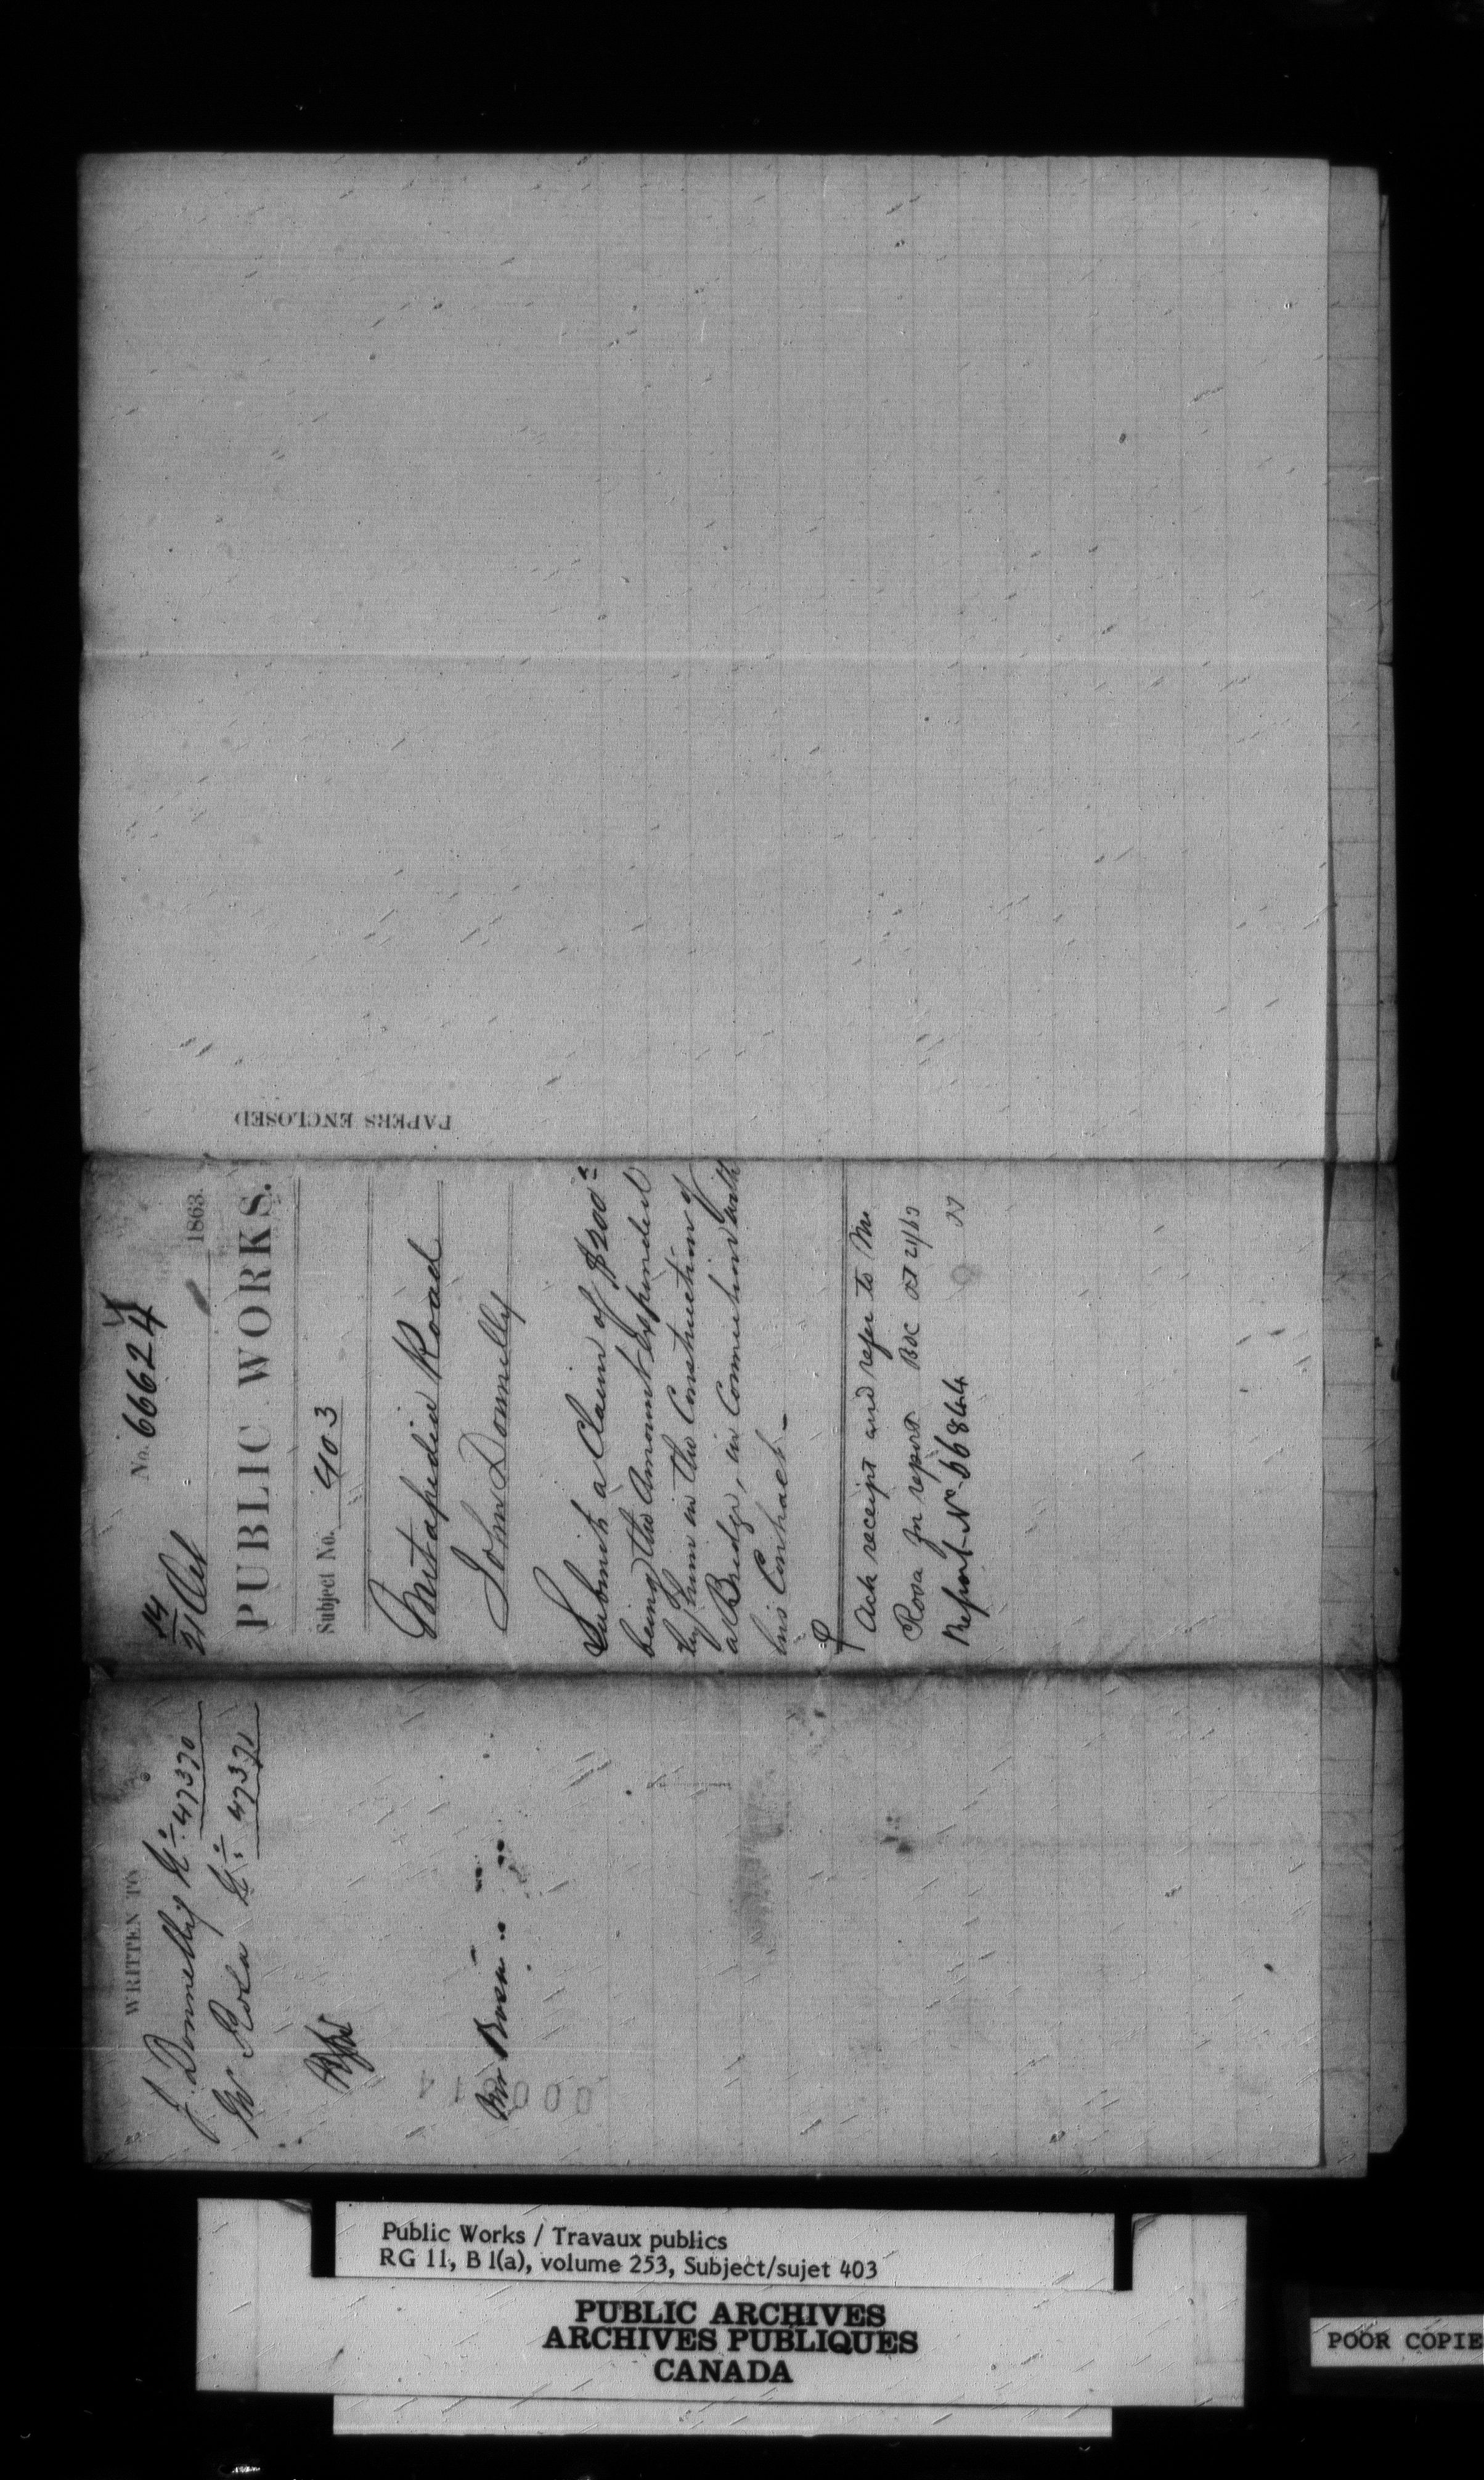 PAPERS ENCLOSED
No. 66624
14/21 Oct 1863.
PUBLIC WORKS.
Subject No. 403
Metapedia Road
John Donnelly
Submits a Claim of $200
being the Amount expended
by him in the Construction of
a Bridge, in Connection with
his Contract. —
Ack receipt and refer to Mr
Rosa for report Oct 21/63
Report No. 66844
WRITTEN TO
J. Donnelly No. 47370
Mr Rosa No. 47371
Public Works / Travaux publics
RG 11, B 1(a), volume 253, Subject/sujet 403
PUBLIC ARCHIVES
ARCHIVES PUBLIQUES
CANADA
POOR COPIE